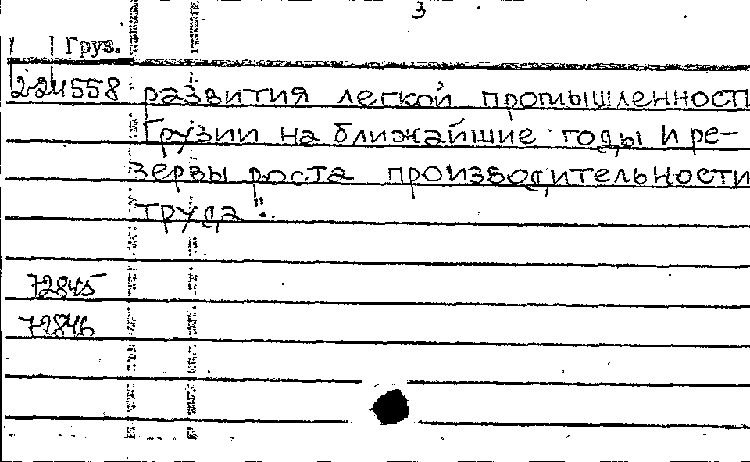 3
Груз.
224558 развития легкой промышленност
Грузии на ближайшие годы и ре-
зервы роста производительности
труда".
72845
72846